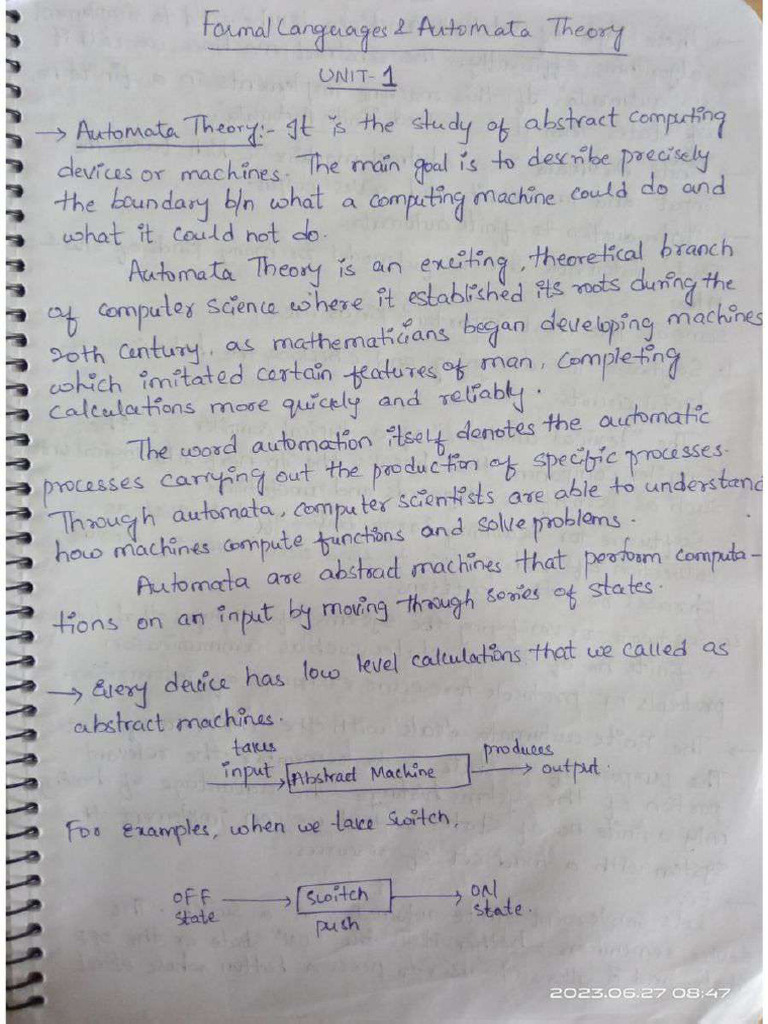 Formal Languages & Automata Theory
UNIT-1
→ Automata Theory:- It is the study of abstract computing
devices or machines. The main goal is to describe precisely
the boundary b/n what a computing machine could do and
what it could not do.
Automata Theory is an exciting, theoretical branch
of computer science where it established its roots during the
20th Century, as mathematicians began developing machines
which imitated certain features of man, completing
calculations more quickly and reliably.
The word automation itself denotes the automatic
processes carrying out the production of specific processes.
Through automata, computer scientists are able to understand
how machines compute functions and solve problems.
Automata are abstract machines that perform computa-
tions on an input by moving through series of states.
→ Every device has low level calculations that we called as
abstract machines.
takes produces
input → Abstract Machine → output.
For examples, when we take switch,
OFF → Switch → ON
state push state.
2023.06.27 08:47